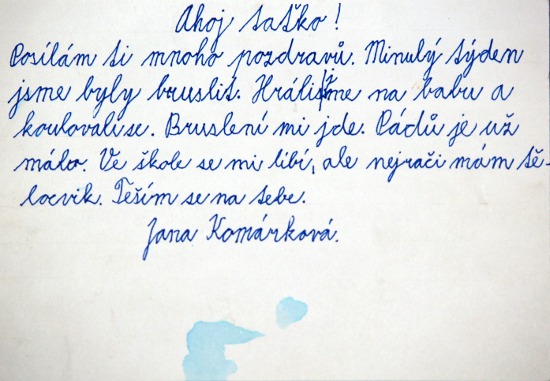 Ahoj taťko!
Posílám ti mnoho pozdravů. Minulý týden
jsme byly bruslit. Hráli jsme na babu a
koulovali se. Bruslení mi jde. Pádů je už
málo. Ve škole se mi líbí, ale nejrači mám tě-
locvik. Těším se na tebe.
Jana Komárková.